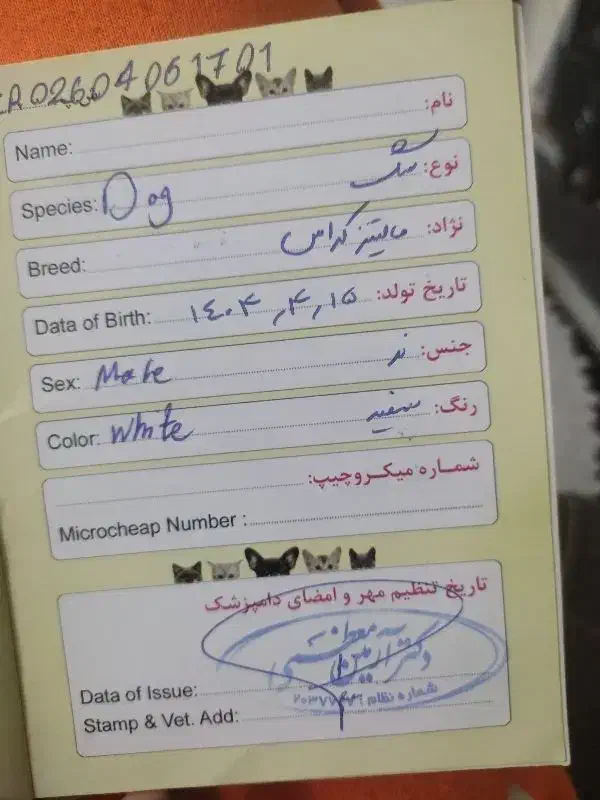 02604061701
Name: نام:
Species: Dog سگ نوع:
Breed: مالتیز کراس نژاد:
Data of Birth: ۱۴۰۴,۴,۱۵ تاریخ تولد:
Sex: Male نر جنس:
Color: White سفید رنگ:
شماره میکروچیپ:
Microcheap Number :
تاریخ تنظیم مهر و امضای دامپزشک
دکتر
شماره نظام
Data of Issue:
Stamp & Vet. Add: